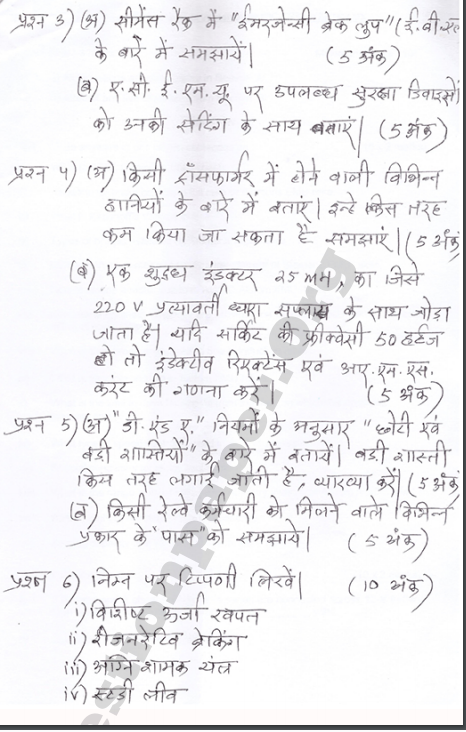 प्रश्न 3) (अ) सीमेंस रैक में "इमरजेन्सी ब्रेक लूप" (ई.बी.एल
के बारे में समझायें। (5 अंक)
(ब) ए.सी.ई.एम.यू. पर उपलब्ध सुरक्षा डिवाइसों
को उनकी सेटिंग के साथ बताएं। (5 अंक)
प्रश्न 4) (अ) किसी ट्रॉसफार्मर में होने वाली विभिन्न
हानियों के बारे में बताएं। इन्हे किस तरह
कम किया जा सकता है समझाएं। (5 अंक)
(ब) एक शुद्ध इंडक्टर 25 mH, का जिसे
220 V प्रत्यावर्ती धारा सप्लाय के साथ जोड़ा
जाता है। यदि सर्किट की फ्रीक्वेंसी 50 हर्टज
हो तो इंडेक्टीव रिएक्टेंस एवं आर.एम.एस.
करंट की गणना करें। (5 अंक)
प्रश्न 5) (अ) "डी. एंड ए." नियमों के अनुसार "छोटी एवं
बड़ी शास्तियों" के बारे में बतायें। बड़ी शास्ती
किस तरह लगाई जाती है, व्याख्या करें। (5 अंक)
(ब) किसी रेल्वे कर्मचारी को मिलने वाले विभिन्न
प्रकार के "पास" को समझाये। (5 अंक)
प्रश्न 6) निम्न पर टिप्पणी लिखें। (10 अंक)
i) विशिष्ट ऊर्जा खपत
ii) रीजनरेटिव ब्रेकिंग
iii) अग्नि शामक यंत्र
iv) स्टडी लीव